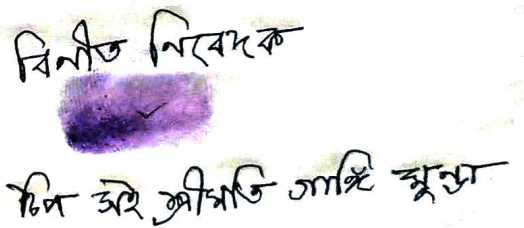 বিনীত নিবেদক
টিপ সই শ্রীমতি গাঙ্গি মুন্ডা